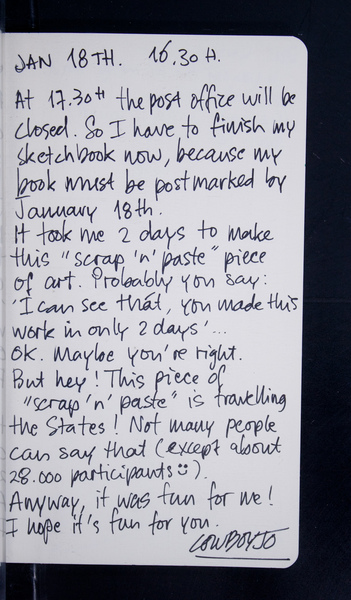 JAN 18TH. 16.30 H.
At 17.30 H the post office will be
closed. So I have to finish my
sketchbook now, because my
book must be postmarked by
January 18th.
It took me 2 days to make
this "scrap 'n' paste" piece
of art. Probably you say:
'I can see that, you made this
work in only 2 days'...
OK. Maybe you're right.
But hey! This piece of
"scrap 'n' paste" is travelling
the States! Not many people
can say that (except about
28.000 participants☺).
Anyway, it was fun for me!
I hope it's fun for you.
COWBOYJO